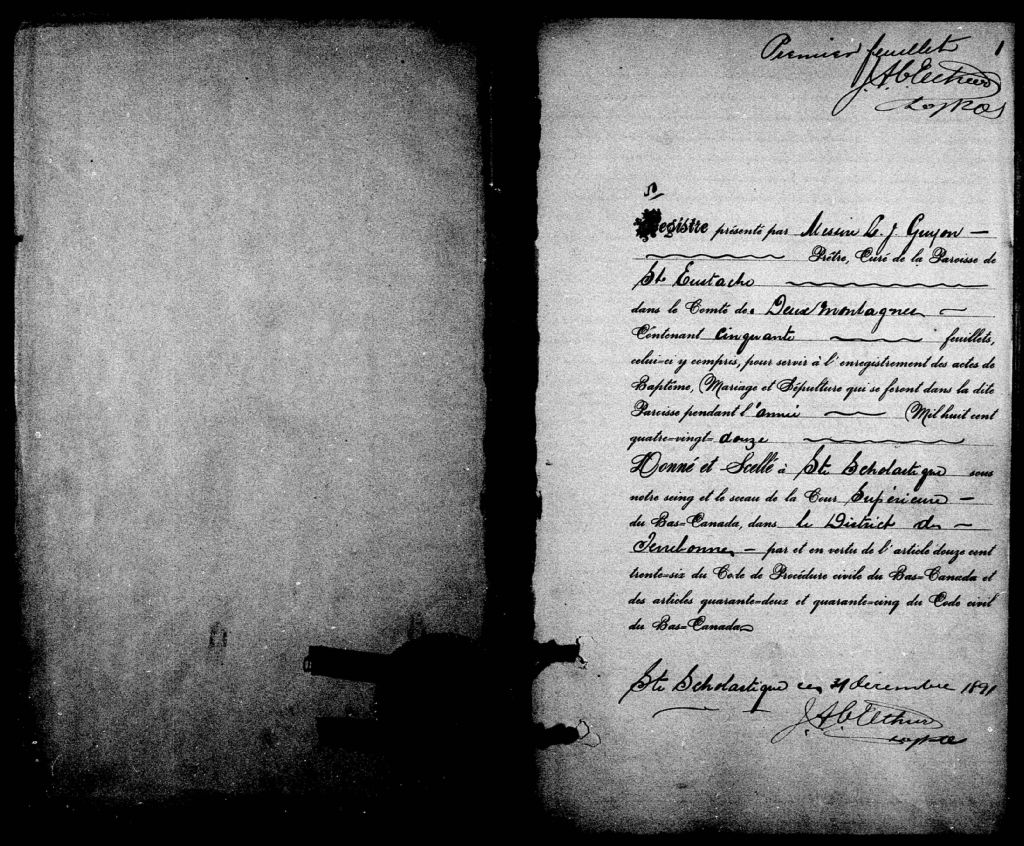 Premier feuillet 1
Registre présenté par Messire L. J. Guyon —
Prêtre, Curé de la Paroisse de
St. Eustache
dans le Comté de Deux Montagnes
Contenant cinquante feuillets,
celui-ci y compris, pour servir à l'enregistrement des actes de
Baptême, Mariage et Sépulture qui se feront dans la dite
Paroisse pendant l'année Mil huit cent
quatre-vingt-douze
Donné et Scellé à Ste Scholastique sous
notre seing et le sceau de la Cour Supérieure —
du Bas-Canada, dans le District de —
Terrebonne — par et en vertu de l'article douze cent
trente-six du Code de Procédure civile du Bas-Canada et
des articles quarante-deux et quarante-cinq du Code civil
du Bas-Canada
Ste Scholastique ce 31 decembre 1891